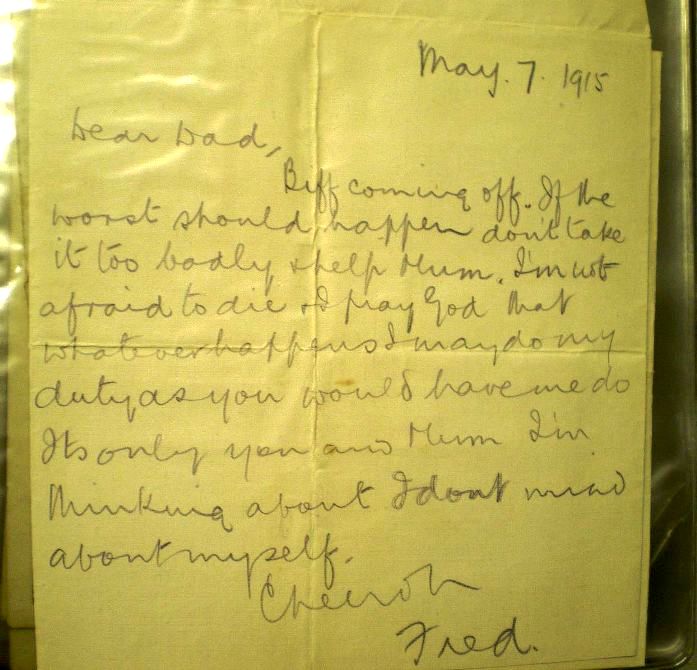 May. 7. 1915
Dear Dad,
Biff coming off. If the
worst should happen don't take
it too badly & help Mum. I'm not
afraid to die & I pray God that
whatever happens I may do my
duty as you would have me do
Its only you and Mum I'm
thinking about I dont mind
about myself.
Cheeroh
Fred.